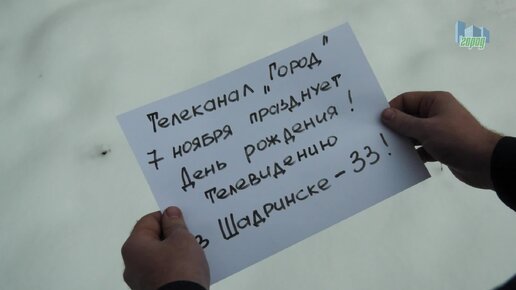 Город
Телеканал "Город"
7 ноября празднует
День рождения!
Телевидению
в Шадринске - 33!